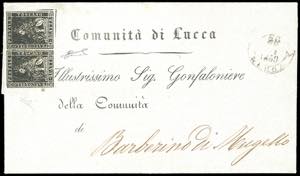 TOSCANO TOSCANO
Comunità di Lucca
Illustrissimo Sig. Gonfaloniere
della Comunità
di
Barberino di Mugello